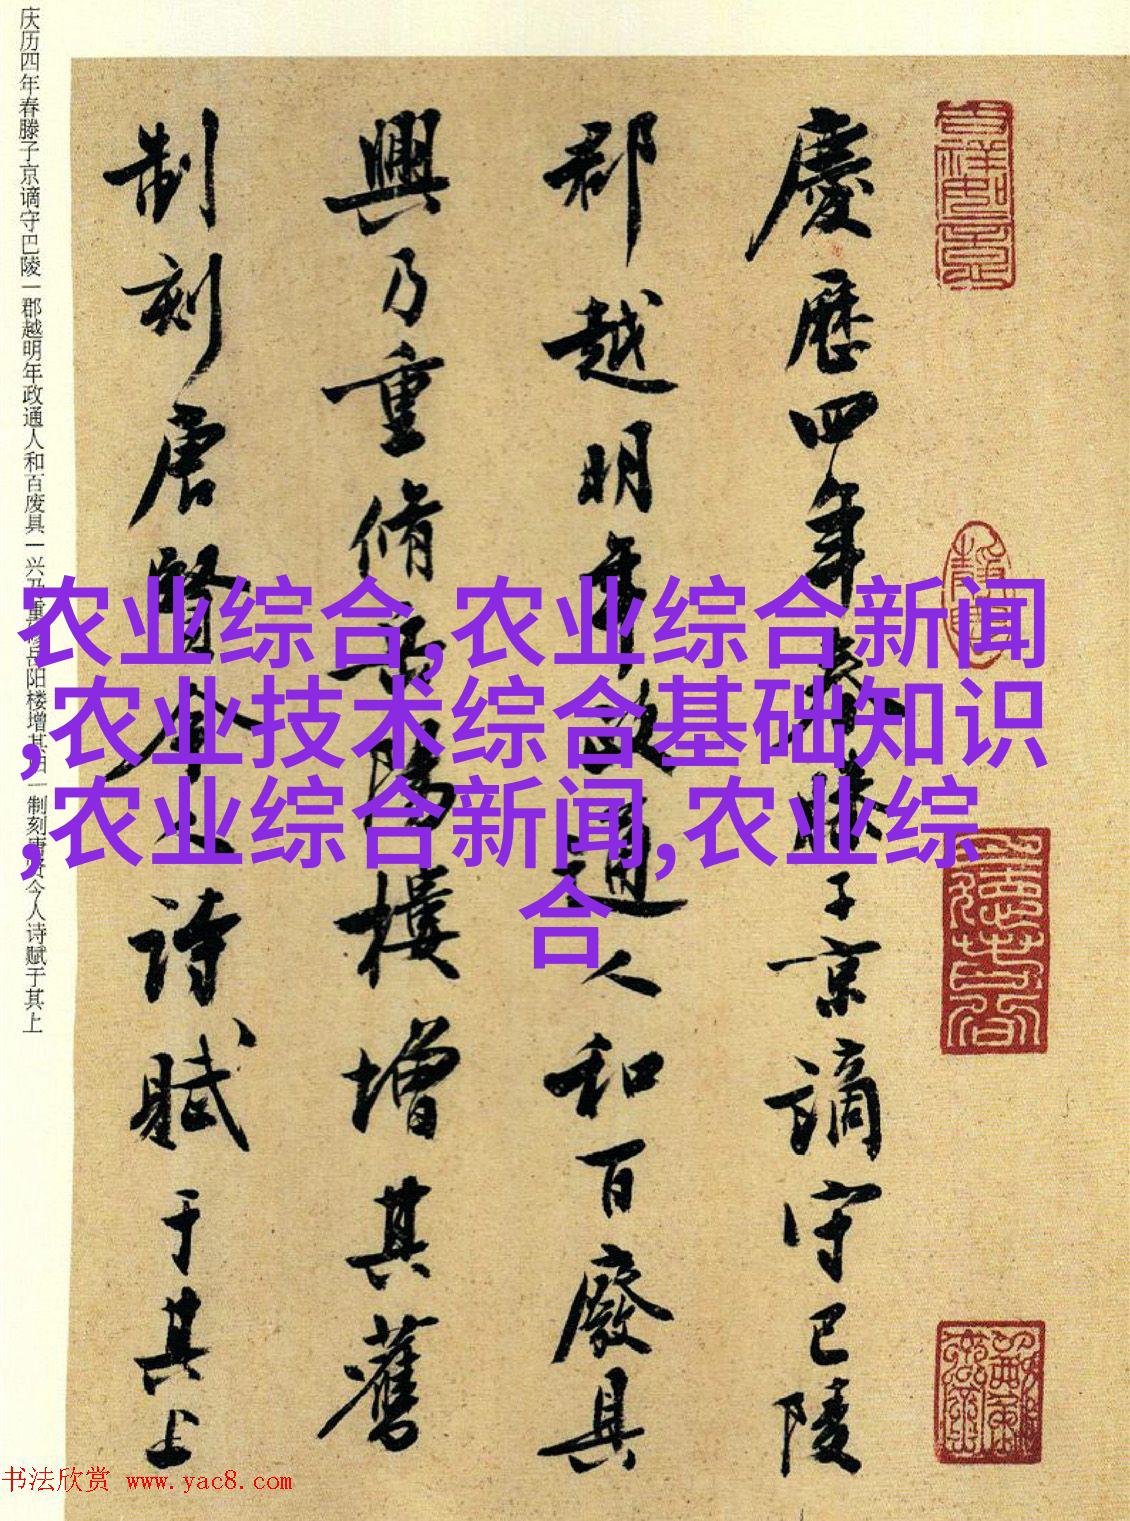 慶歷四年春滕子京謫守巴陵
郡越明年政通人和百廢具
興乃重脩岳陽樓增其舊
制刻唐賢今人詩賦于其上
庆历四年春滕子京谪守巴陵一郡越明年政通人和百废具一兴乃重修岳阳楼增其旧一制刻唐贤今人诗赋于其上
农业综合,农业综合新闻
,农业技术综合基础知识
,农业综合新闻,农业综
合
书法欣赏 www.yac8.com